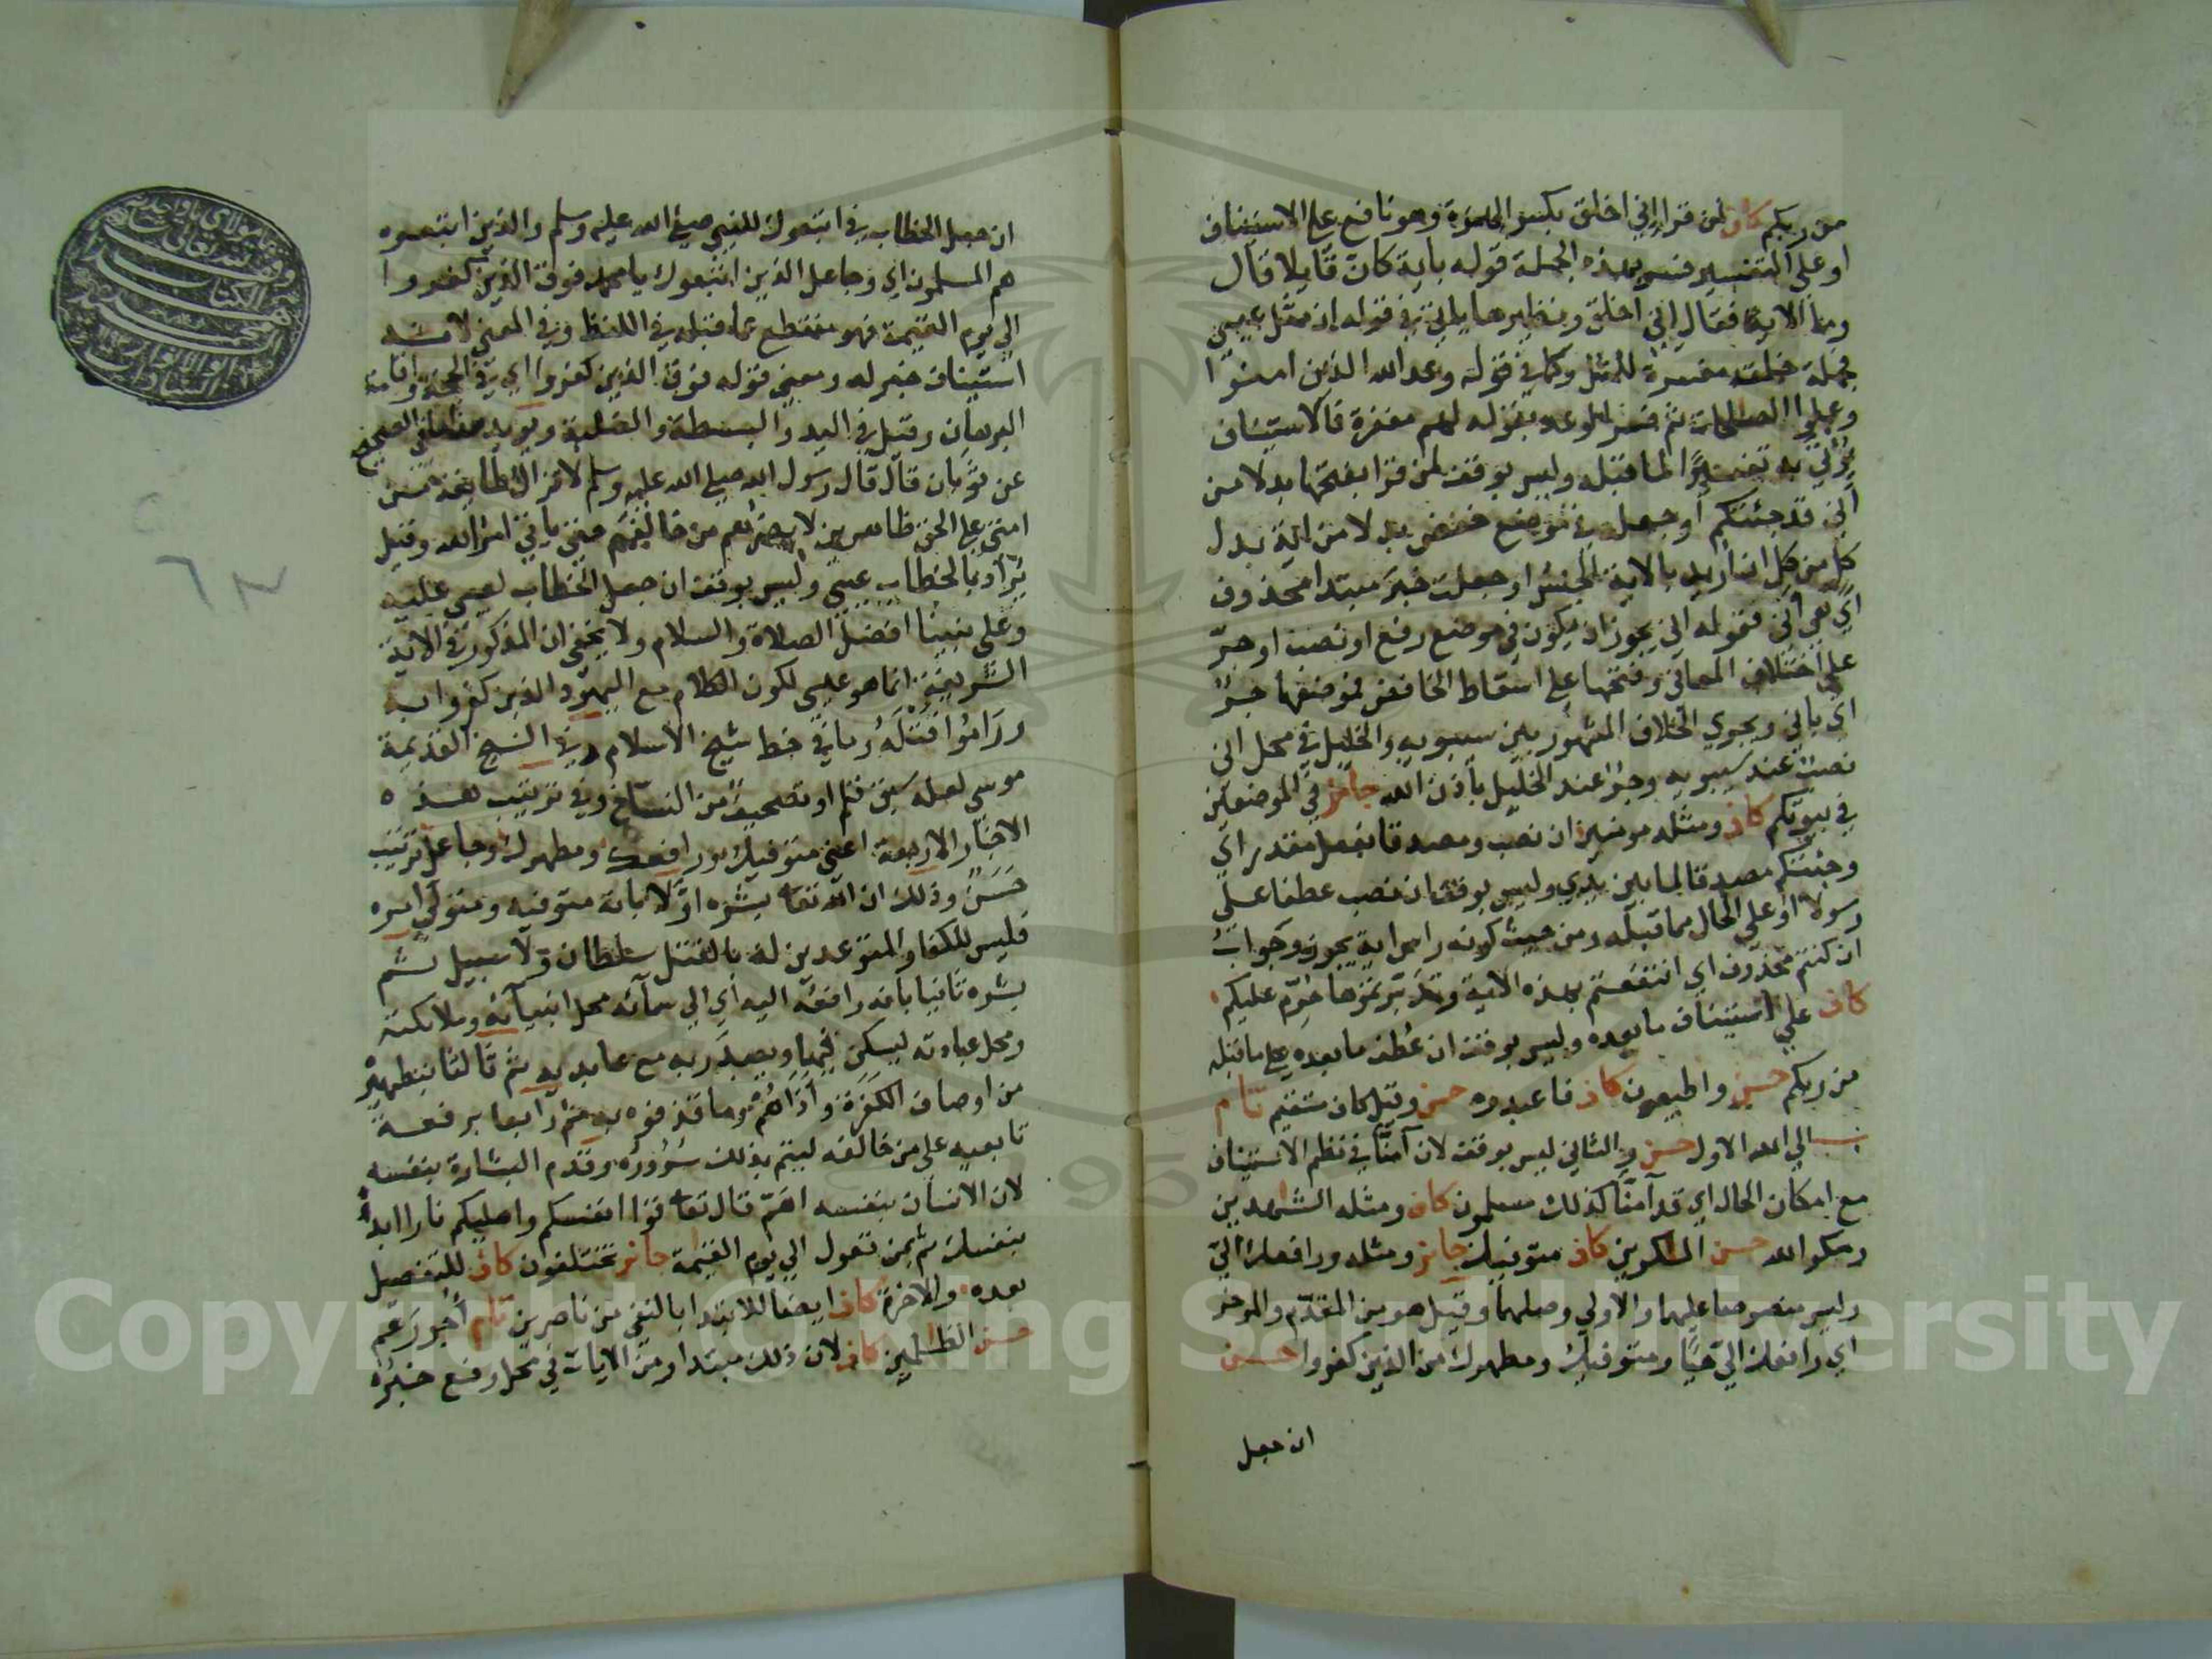 من ربكم كاف لمن قرا إني اخلق بكسر الهمزة وهو نافع على الاستيناف
او على التفسير فسر بهذه الجملة قوله باية كانّ قايلا قال
وما الاية فقال إني اخلق ونظيرها ياتي في قوله ان مثل عيسى
فجملة خلقه مفسرة للمثل وكما في قوله وعد الله الذين امنوا
وعملوا الصلحات ثم فسر الوعد بقوله لهم مغفرة فالاستيناف
يؤتي به تفسيرًا لما قبله وليس بوقف لمن قرا بفتحها بدلا من
أني قد جئتكم أو جعل في موضع خفض بدلا من اية بدل
كل من كل ان اريد بالاية الجنس او جعلت خبر مبتدا محذوف
اي هي أني فقوله اني يجوز ان يكون في موضع رفع او نصب او جرّ
على اختلاف المعاني وفتحها على اسقاط الخافض فموضعها جرّ
اي باني ويجري الخلاف المشهور بين سيبويه والخليل في محل اني
نصب عند سيبويه وجر عند الخليل بأذن الله جائز في الموضعين
في بيوتكم كاف ومثله مومنين ان نصب ومصدقا بفعل مقدر اي
وجئتكم مصدقا لما بين يدي وليس بوقف ان نصب عطفا على
رسولا او على الحال مما قبله ومن حيث كونه راس اية يجوز وجواب
ان كنتم محذوف اي انتفعتم بهذه الاية وتدبرتموها حرّم عليكم
كاف على استيناف ما بعده وليس بوقف ان عُطف ما بعده على ما قبله
من ربكم حسن واطيعون كاف فاعبدوه حسن وقيل كاف ستقيم تام
الى الله الاول حسن والثاني ليس بوقف لان آمنّا في نظم الاستيناف
مع امكان الحال اي قد آمنّا كذلك مسلمون كاف ومثله الشهدين
ومكر الله حسن المكرين كاف متوفيك جايز ومثله ورافعك اليّ
وليس منصوصا عليهما والاولى وصلهما وقيل هو من المقدّم والموخر
اي رافعك اليّ حيًّا ومتوفيك ومطهرك من الذين كفروا حسن
ان جعل
ان جعل الخطاب في اتبعوك للنبي صلى الله عليه وسلم والذين اتبعوه
هم المسلمون اي وجاعل الذين اتبعوك يا محمد فوق الذين كفروا
الى يوم القيمة فهو منقطع عما قبله في اللفظ وفي المعنى لانه
استيناف خبر له ومعنى قوله فوق الذين كفروا اي في الحجة واقامة
البرهان وقيل في اليد والبسطة والغلبة ويويد هذا ما في الصحيح
عن ثوبان قال قال رسول الله صلى الله عليه وسلم لا تزال طايفة من
امتي على الحق ظاهرين لا يضرهم من خالفهم حتى ياتي امر الله وقيل
يُراد بالخطاب عيسى وليس بوقف ان جعل الخطاب لعيسى عليه
وعلى نبينا افضل الصلاة والسلام ولا يخفى ان المذكور في الاية
الشريفة انما هو عيسى لكون الكلام مع اليهود الذين كفروا به
ورامُوا قتْلَهُ وما في خط شيخ الاسلام وفي النسخ القديمة
موسى لعله سبق قلم او تصحيف من النساخ وفي ترتيب هذه
الاخبار الاربعة اعني متوفيك ورافعك ومطهرك وجاعل ترتيب
حَسَنٌ وذلك ان الله تعا بشره اوّلا بانه متوفيه ومتولي امره
فليس للكفار المتوعدين له بالقتل سلطان ولا سبيل ثم
بشره ثانيا بانه رافعه اليه اي الى سمآئه محل انبيآئه وملائكته
ومحل عبادته ليسكن فيها ويعبد ربه مع عابديه ثم ثالثا بتطهيره
من اوصاف الكفرة وأذاهُمْ وما قذفوه به ثم رابعا برفعة
تابعيه على من خالفه ليتم بذلك سروره وقدم البشارة بنفسه
لان الانسان بنفسه اهم قال تعا قوا انفسكم واهليكم نارا ابدأ
بنفسك ثم بمن تعول الى يوم القيمة جائز تختلفون كاف للتفصيل
بعده والاخرة كاف ايضا للابتدا بالنفي من ناصرين تام اجورَهم
حسن الظلمين كاف لان ذلك مبتدا ومن الايات في محل رفع خبرُه